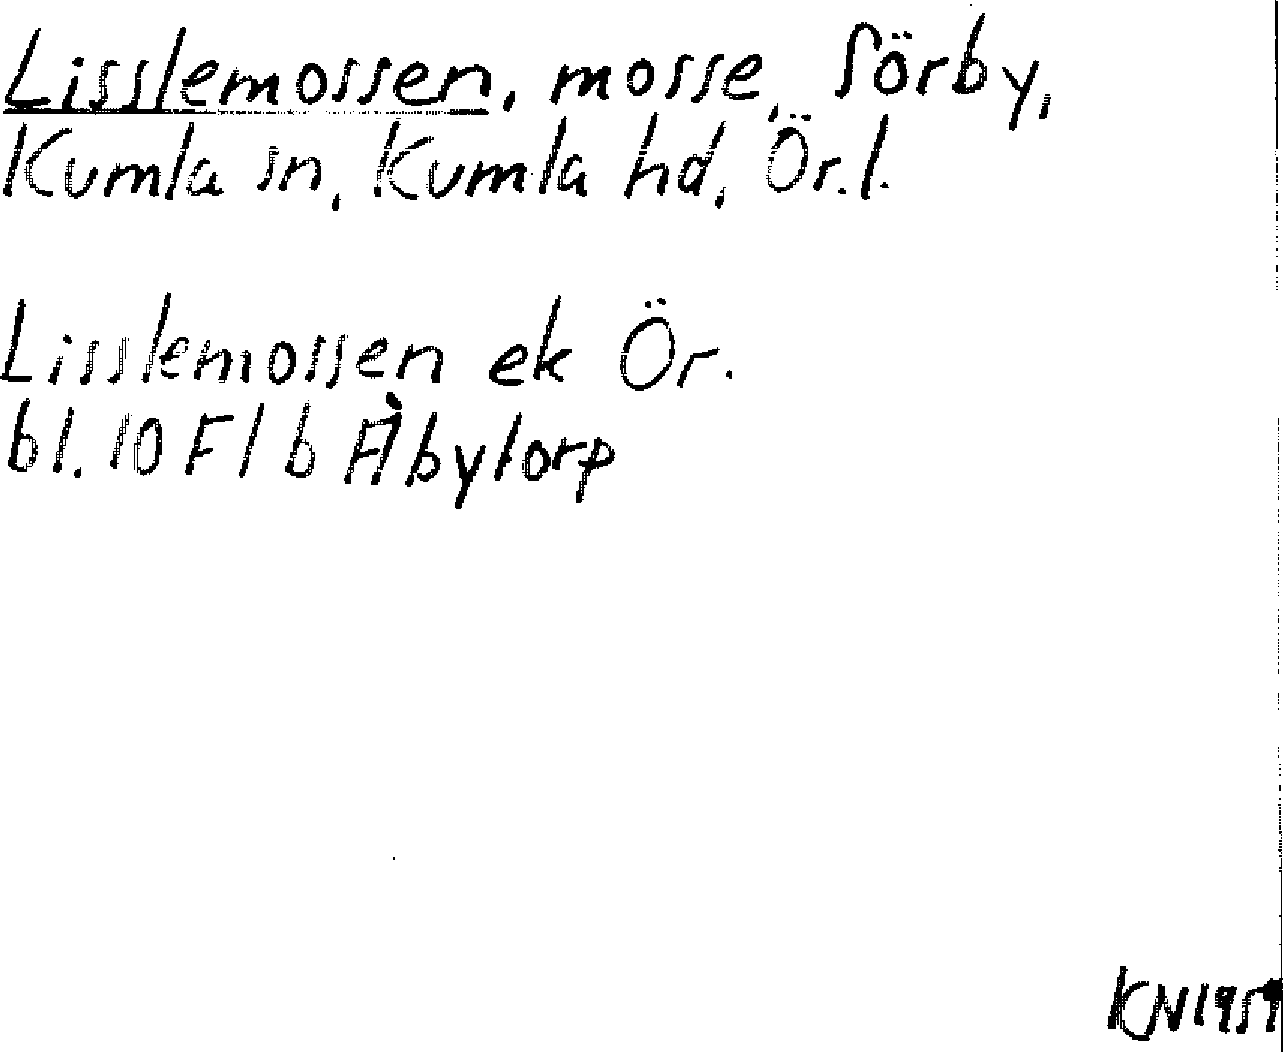 Lisslemossen, mosse, Sörby,
Kumla sn, Kumla hd, Ör. l.
Lisslemossen ek Ör.
bl. 10 F 1 b Åbytorp
KN 1959